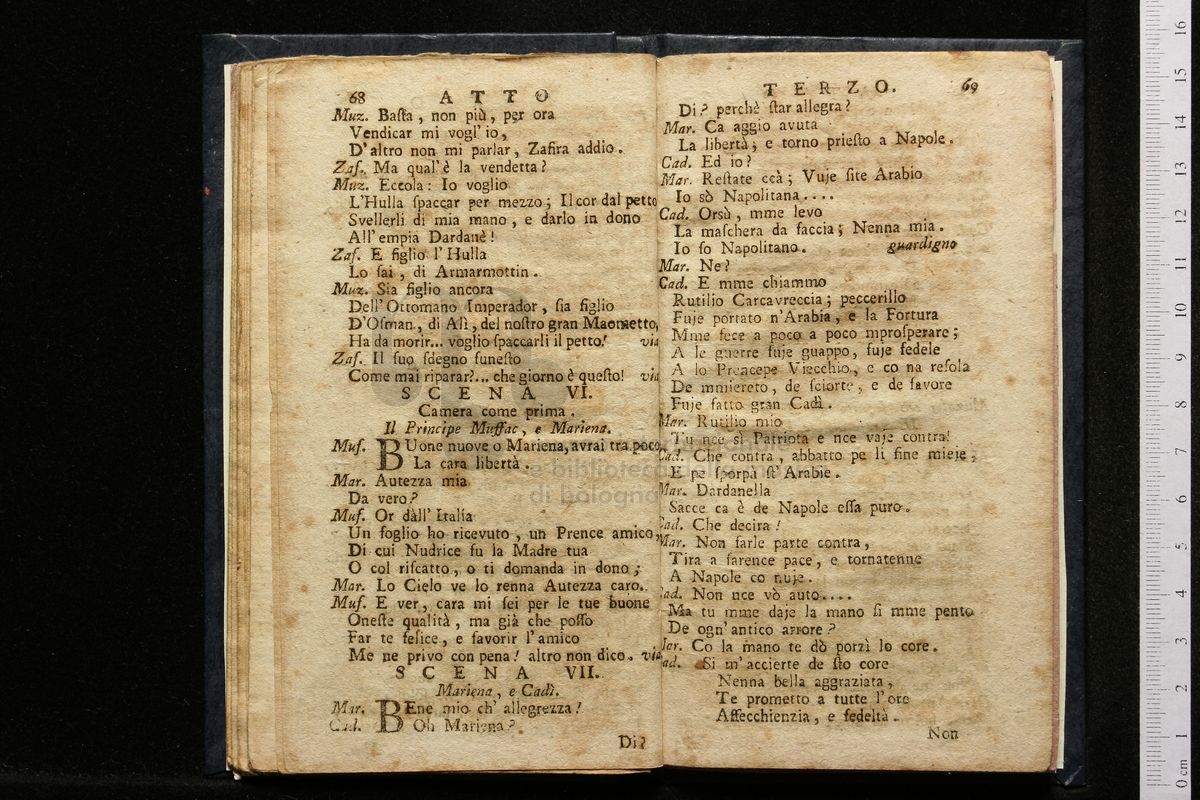 68 ATTO
Muz. Baſta, non più, per ora
Vendicar mi vogl' io,
D'altro non mi parlar, Zafira addio.
Zaf. Ma qual' è la vendetta?
Muz. Eccola: Io voglio
L'Hulla ſpaccar per mezzo; Il cor dal petto
Svellerli di mia mano, e darlo in dono
All' empia Dardanè!
Zaf. E figlio l' Hulla
Lo ſai, di Armarmottin.
Muz. Sia figlio ancora
Dell' Ottomano Imperador, ſia figlio
D'Oſman, di Alì, del noſtro gran Maometto,
Ha da morir... voglio ſpaccarli il petto! via
Zaf. Il ſuo ſdegno funeſto
Come mai riparar?... che giorno è queſto! via
SCENA VI.
Camera come prima.
Il Principe Muffac, e Mariena.
Muf. BUone nuove o Mariena, avrai tra poco
La cara libertà.
Mar. Autezza mia
Da vero?
Muf. Or dàll' Italia
Un foglio ho ricevuto, un Prence amico,
Di cui Nudrice fu la Madre tua
O col riſcatto, o ti domanda in dono;
Mar. Lo Cielo ve lo renna Autezza caro.
Muf. E ver, cara mi ſei per le tue buone
Oneſte qualità, ma già che poſſo
Far te felice, e favorir l'amico
Me ne privo con pena! altro non dico. via
SCENA VII.
Mariena, e Cadì.
Mar. BEne mio ch' allegrezza!
Cad. Oh Mariena?
Di?
TERZO. 69
Di? perchè ſtar allegra?
Mar. Ca aggio avuta
La libertà; e torno prieſto a Napole.
Cad. Ed io?
Mar. Reſtate ccà; Vuje ſite Arabio
Io sò Napolitana....
Cad. Orsù, mme levo
La maſchera da faccia; Nenna mia.
Io ſo Napolitano. guardigno
Mar. Ne?
Cad. E mme chiammo
Rutilio Carcavreccia; peccerillo
Fuje portato n'Arabia, e la Fortura
Mme fece a poco a poco mproſperare;
A le guerre fuje guappo, fuje fedele
A lo Prencepe Viecchio, e co na reſola
De mmiereto, de ſciorte, e de favore
Fuje fatto gran Cadì.
Mar. Rutilio mio
Tu nce sì Patriota e nce vaje contra!
Cad. Che contra, abbatto pe li fine mieje,
E pe ſporpà ſt' Arabie.
Mar. Dardanella
Sacce ca è de Napole eſſa puro.
Cad. Che decira!
Mar. Non farle parte contra,
Tira a farence pace, e tornatenne
A Napole co nuje.
Cad. Non nce vò auto....
Ma tu mme daje la mano ſi mme pento
De ogn' antico arrore?
Mar. Co la mano te dò porzì lo core.
Cad. Si m'accierte de ſto core
Nenna bella aggraziata,
Te prometto a tutte l'ore
Affecchienzia, e fedeltà.
Non